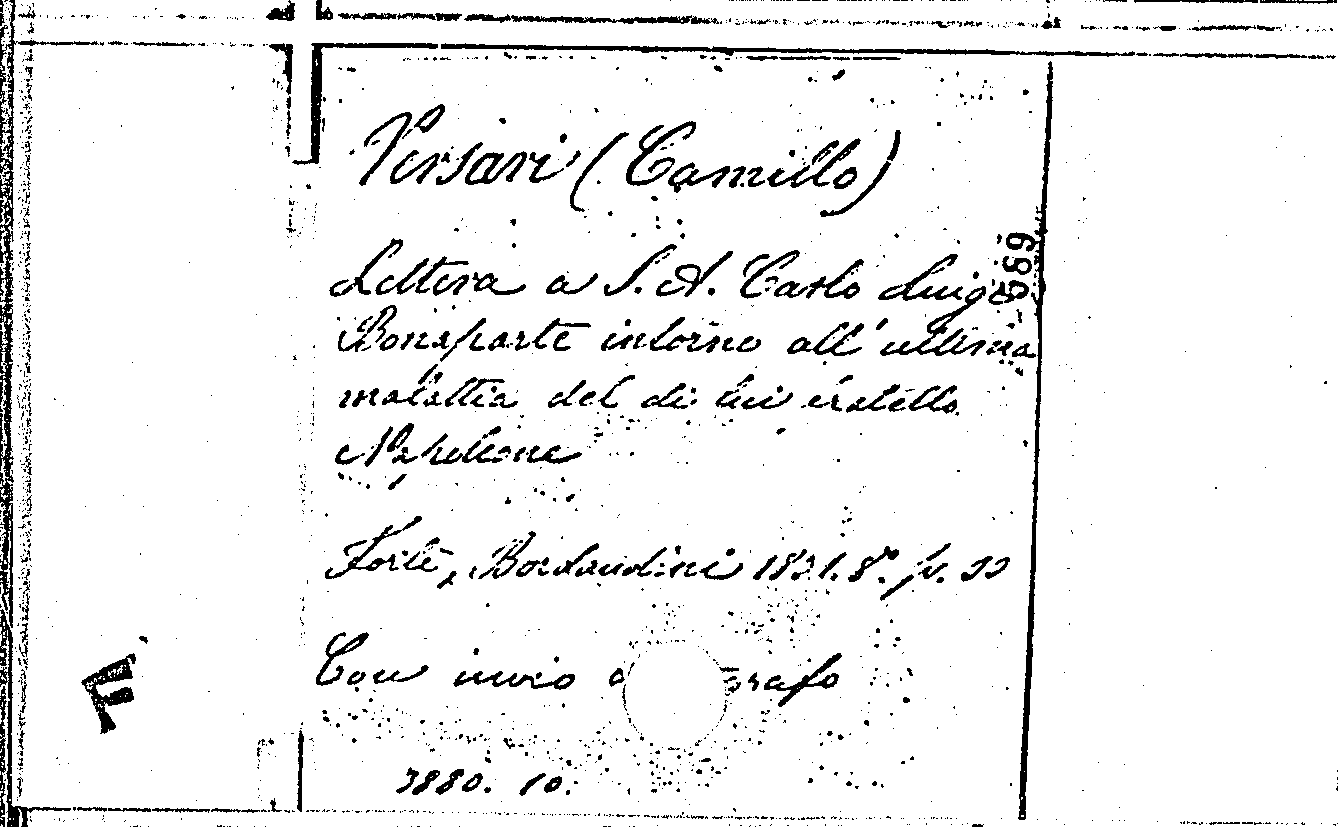 Versari (Camillo)
Lettera a S. A. Carlo Luigi
Bonaparte intorno all'ultima
malattia del di lui fratello
Napoleone
Forlì, Bordandini 1831. 8º. p.
Con invio
3880. 10.
F